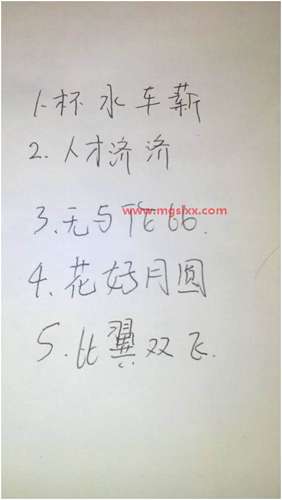 1. 杯水车薪
2. 人才济济
www.mgslxx.com
3. 无与伦比.
4. 花好月圆
5. 比翼双飞.